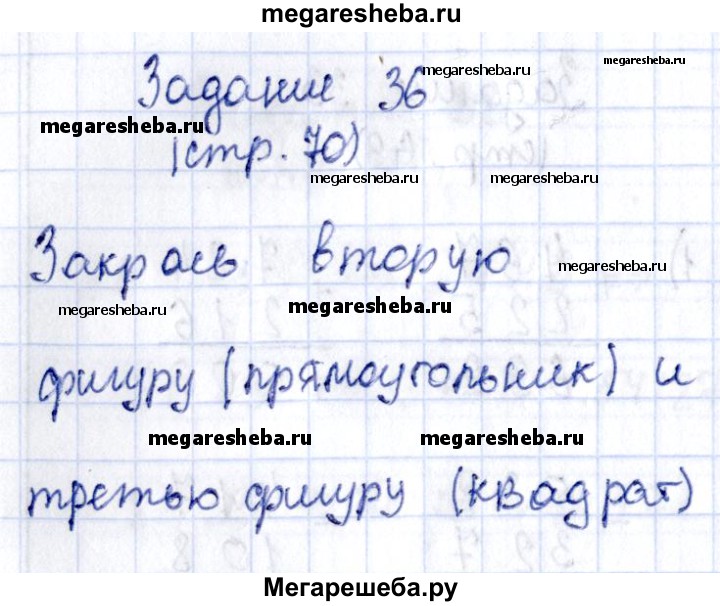 megaresheba.ru
Задание 36 megaresheba.ru megaresheba.ru
megaresheba.ru
(стр. 70)
megaresheba.ru megaresheba.ru
Закрась вторую
megaresheba.ru
megaresheba.ru megaresheba.ru
фигуру (прямоугольник) и
megaresheba.ru megaresheba.ru
третью фигуру (квадрат)
Мегарешеба.ру